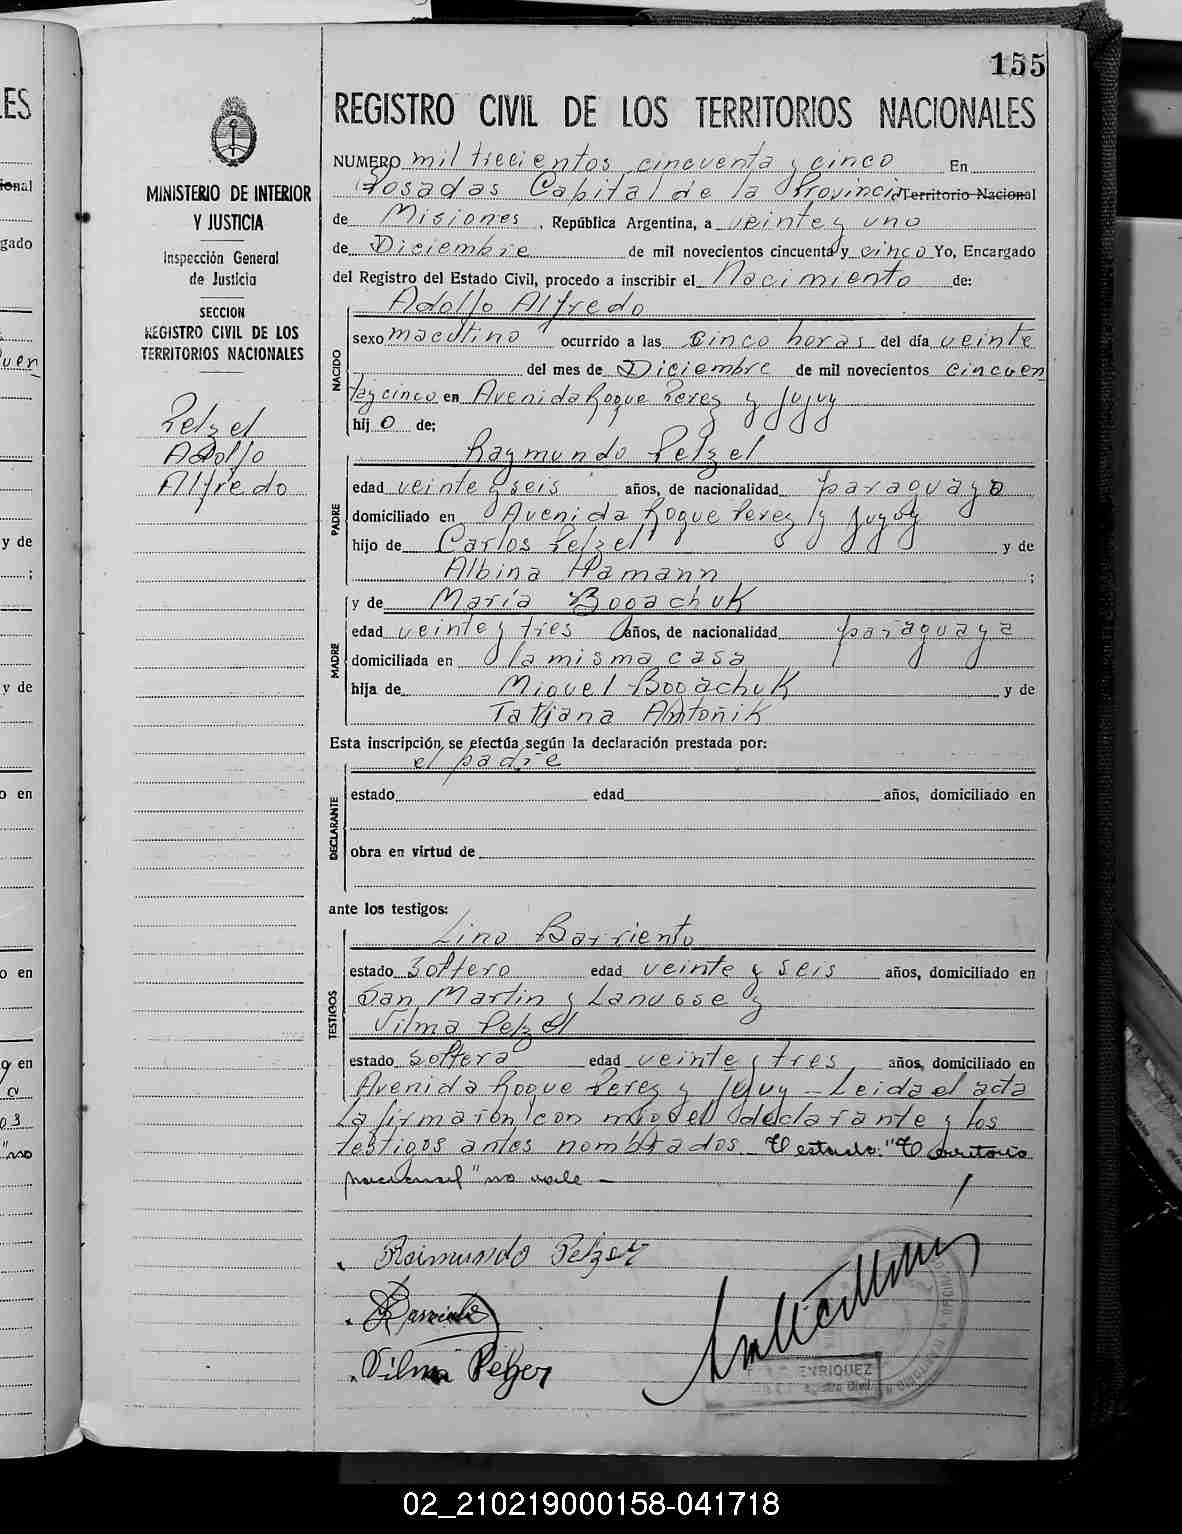 155
REGISTRO CIVIL DE LOS TERRITORIOS NACIONALES
MINISTERIO DE INTERIOR
Y JUSTICIA
Inspección General
de Justicia
SECCION
REGISTRO CIVIL DE LOS
TERRITORIOS NACIONALES
Pelzel
Adolfo
Alfredo
NUMERO mil trecientos cincuenta y cinco En
Posadas Capital de la Provincia Territorio Nacional
de Misiones, República Argentina, a veinte y uno
de Diciembre de mil novecientos cincuenta y cinco Yo, Encargado
del Registro del Estado Civil, procedo a inscribir el Nacimiento de:
Adolfo Alfredo
NACIDO
sexo maculino ocurrido a las cinco horas del día veinte
del mes de Diciembre de mil novecientos cincuen
tay cinco en Avenida Roque Perez y Jujuy
hijo de:
Raymundo Pelzel
PADRE
edad veinte y seis años, de nacionalidad paraguaya
domiciliado en Avenida Roque Perez y Jujuy
hijo de Carlos Pelzel y de
Albina Hamann ;
y de María Bogachuk
MADRE
edad veinte y tres años, de nacionalidad paraguaya
domiciliada en la misma casa
hija de Miguel Bogachuk y de
Tatjana Antoñik
Esta inscripción se efectúa según la declaración prestada por:
el padre
DECLARANTE
estado edad años, domiciliado en
obra en virtud de
ante los testigos:
Lino Barriento
TESTIGOS
estado Soltero edad veinte y seis años, domiciliado en
San Martin y Lanusse y
Vilma Pelzel
estado soltera edad veinte y tres años, domiciliado en
Avenida Roque Perez y Jujuy - Leida el acta
la firmaron con migo el declarante y los
testigos antes nombrados. Testado: "Territorio
nacional" no vale -
Raimundo Pelzer
Barriento
Vilma Pelzer
ENRIQUEZ
02_210219000158-041718